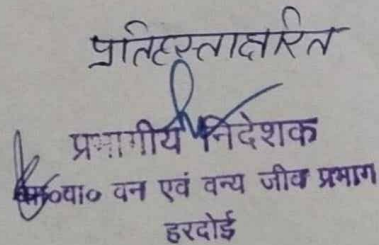 प्रतिहस्ताक्षरित
प्रभागीय निदेशक
सा०वा० वन एवं वन्य जीव प्रभाग
हरदोई